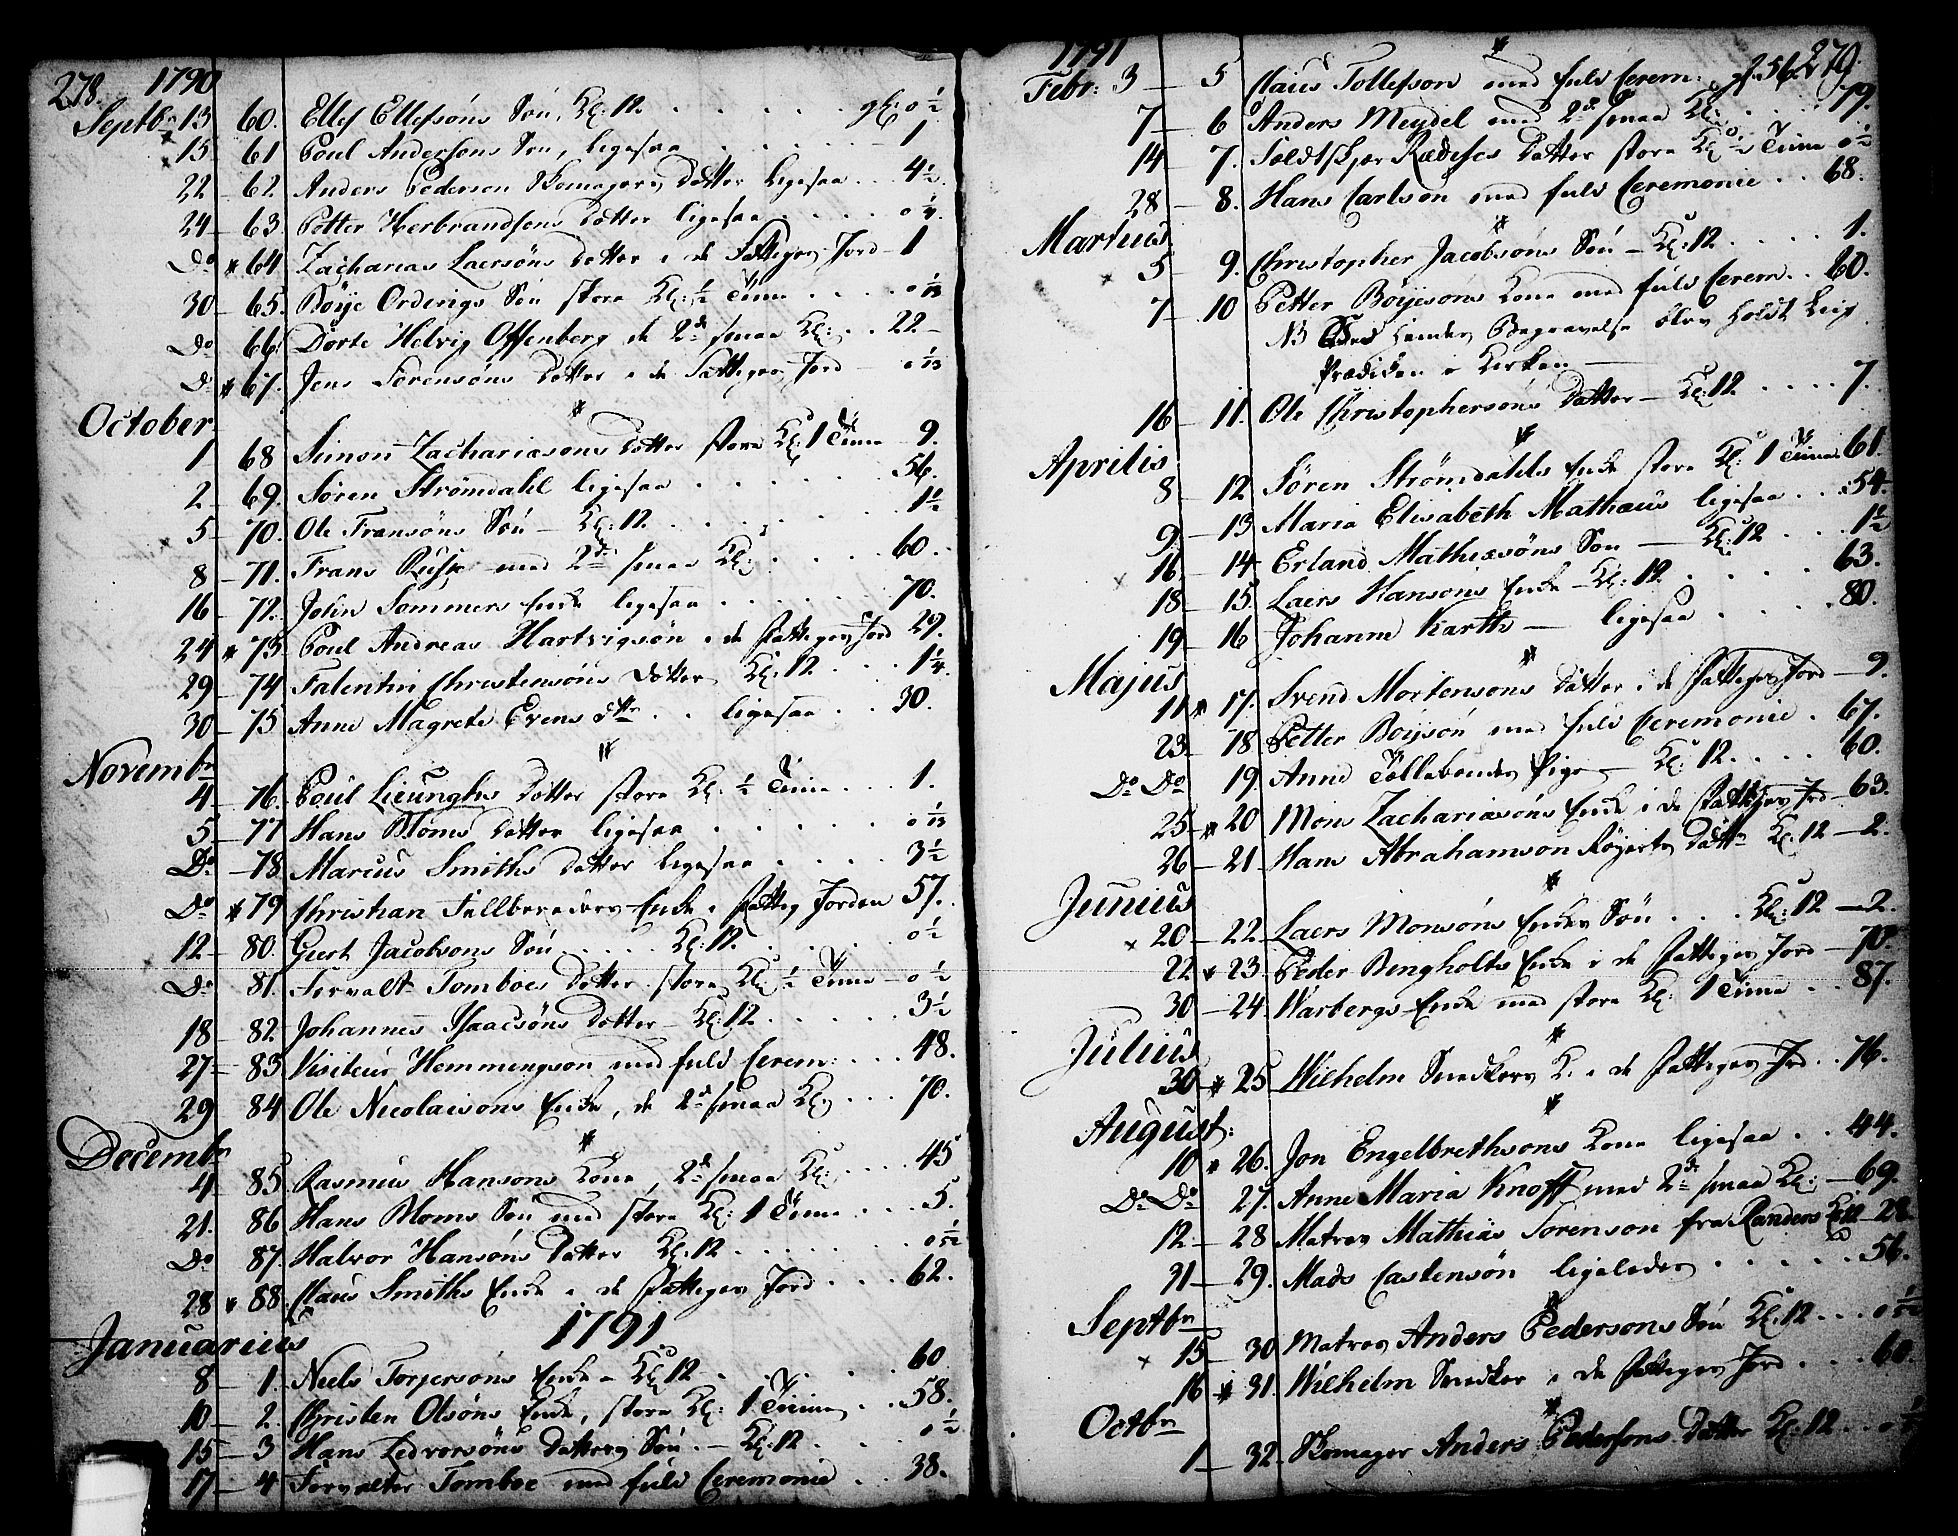 278. 1790
Septbr 13 60. Ellef Ellefsöns Sön, Kl: 12 gl: 0 1/2
15 61 Poul Andersons Sön, ligesaa 1
22 62. Anders Pedersen Skomagers Datter ligesaa 4 1/2
24 63. Petter Herbrandsens Datter ligesaa 0 1/4
Do 64. Zacharias Laersöns Datter i de Fattiges Jord 1
30 65. Böije Orderigs Sön store Kl: 1/2 Time 0 1/13
Do 66. Dorte Helvig Offenberg de 2de smaa Kl: 22
Do 67. Jens Sörensöns Datter i de Fattiges Jord 0 1/13
October
1 68 Simon Zachariasons Datter store Kl: 1 Time 9.
2 69. Sören Strömdahl ligesaa 56.
5 70. Ole Fransöns Sön Kl: 12 1 1/2
8 71. Frans med 2de smaa Kl: 60.
16 72. John Sommers Enke ligesaa 70.
24 73. Poul Andreas Hartvigsön i de Fattiges Jord 29.
29 74 Falentin Christensöns Datter Kl: 12 1 1/4
30 75 Anne Magrete Evens dtr ligesaa 30.
Novembr
4 76. Poul Lieunghs Datter store Kl: 1/2 Time 1.
5 77 Hans Bloms Datter ligesaa 0 1/13
Do 78. Marcus Smiths Datter ligesaa 3 1/2
Do 79 Christian Enke i Fattig Jorden 57.
12 80. Gert Jacobsons Sön Kl: 12. 0 1/2
Do 81. Forvalt: Tomboes Datter store Kl: 1/2 Time 0 1/2
18 82. Johannes Isaacsöns Datter Kl: 12 3 1/2
27 83 Visiteur Hemmingson med fuld Cerem: 48.
29 84 Ole Nicolaisons Enke, de 2de smaa Kl: 70.
Decembr
4 85. Rasmus Hansons Kone, 2de smaa Kl: 45
21. 86 Hans Bloms Sön med store Kl: 1 Time 5.
Do 87. Halvor Hansöns Datter Kl: 12
28 88. Claus Smiths Enke i de Fattiges Jord 62.
Januarius 1791
8 1. Niels Torjersöns Enke Kl: 12 60
10 2. Christen Olsöns Enke, store Kl: 1 Time 58.
15 3 Hans Ledvorsöns Datters Sön Kl: 12 0 1/2
17 4 Forvalter Tomboe med fuld Ceremonie 38.
1791 279.
Febr: 3 5 Claus Tollefson med fuld Cerem: gl. 56.
7 6 Anders Meydel med 2de smaa Kl: 79.
14 7. Datter store Kl: 1/2 Time 0 1/2
28 8. Hans Carlson med fuld Ceremonie 68.
Martius
5 9. Christopher Jacobsöns Sön Kl: 12 1.
7 10 Petter Böijesöns Kone med fuld Cerem. 60.
NB hendes Begravelse blev holdt Liig
Prædiken i Kirken
16 11. Ole Christophersöns Datter Kl: 12 7.
Aprilis
8 12 Sören Strömdahls Enke store Kl: 1 Time 61.
9 13 Maria Elisabeth Mathæus ligesaa 54.
16 14 Erland Mathiæsöns Sön Kl: 12 1 1/2
18 15. Laers Hansons Enke Kl: 12. 63.
19 16 Johanne Karth ligesaa 80.
Majus
11 17. Svend Mortensons Datter i de Fattiges Jord 9.
23 18 Petter Böijsön med fuld Ceremonie 67.
Do Do 19. Anne Tollebondes Pige Kl: 12. 60.
25 20 Mons Zachariasöns Enke i de Fattiges Jord 63.
26 21. Hans Abrahamson Datter Kl: 12 2.
Junius
20 22. Laers Monsöns Enkes Sön Kl: 12 2.
22 23. Peder Bingholts Enke i de Fattiges Jord 70.
30 24. Warbergs Enke med store Kl: 1 Time 87.
Julius
30 25 Wilhelm Snedkers K. i de Fattiges Jord 76.
August:
10 26. Jon Engelbrethsons Kone ligesaa 44.
Do Do 27. Anne Maria Knoff med 2de smaa Kl: 69.
12 28 Matros Mathias Sorenson fra Randers Kl: 12 28.
31 29. Mads Castensön ligeledes 56.
Septbr
15 30 Matros Anders Pedersons Sön Kl: 12
16 31. Wilhelm Snedker i de Fattiges Jord 60.
Octbr
1 32. Skomager Anders Pedersons Datter Kl: 12